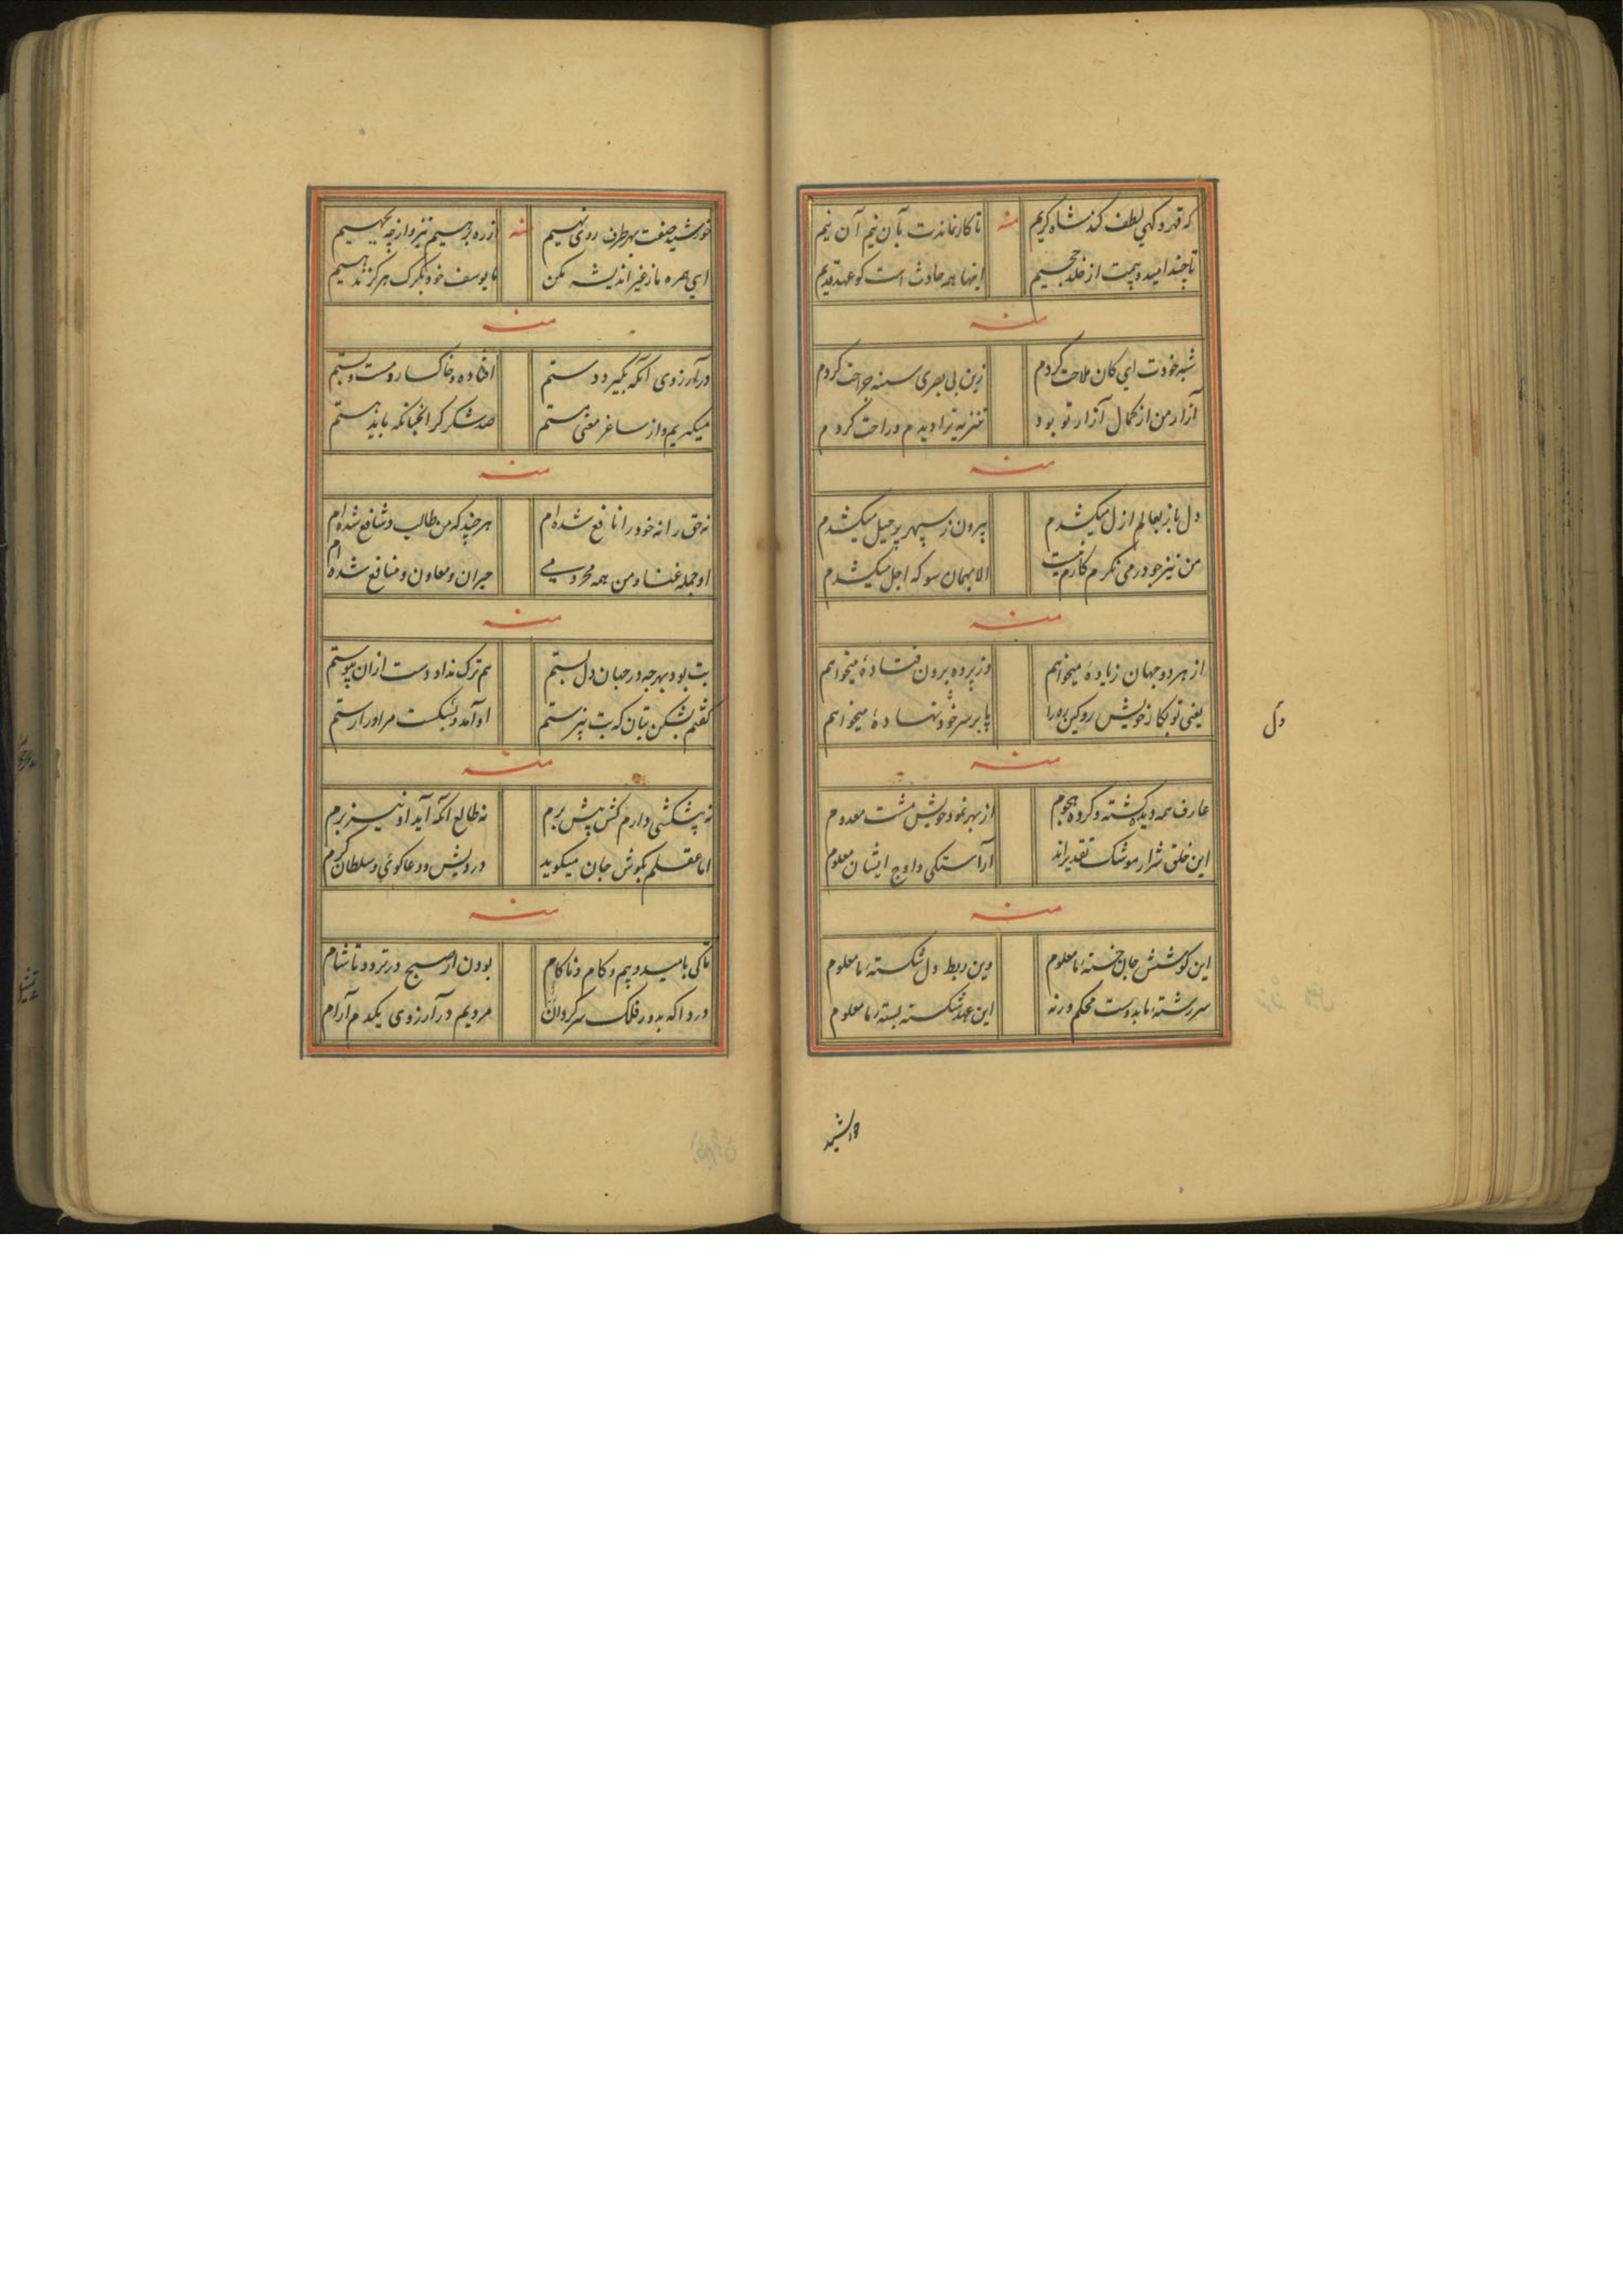 که قهر و کهی لطف کند شاه کریم منه تا کار نماندت بآن نیم آن نیم
تا چند امید و بیمت از خلد و جحیم اینها همه حادث است کو عهد قدیم
منه
شبه خودت ای کان ملاحت کردم زین بی بصری سینه جراحت کردم
آزار من از کمال آزار تو بود تنزیه ترا دیدم و راحت کردم
منه
دل باز بعالم ازل میکشدم بیرون ز سپهر پر حیل میکشدم
من نیز چو در می نکرم کارم نیست الا بهمان سو که اجل میکشدم
منه
از هر دو جهان زیادهٔ میخواهم وز پرده برون فتادهٔ میخواهم
یعنی تو بکار خویش رو کین ره را پا بر سر خود نهادهٔ میخواهم
دل
منه
عارف همه دیده کشته و کرده هجوم از بهر نمود خویش مشت معدوم
این خلق شرار موشک تقدیراند آراستکی و اوج ایشان معلوم
منه
این کوشش جان خستهٔ ما معلوم وین ربط دل شکستهٔ ما معلوم
سررشتهٔ ما بدوست محکم ورنه این عهد شکسته بستهٔ ما معلوم
خورشید
خورشید صفت بهر طرف روی نهیم منه از ره نرسیم نیز و از چه بجهیم
ای همره ما ز غیر اندیشه مکن ما یوسف خود بکرک هرکز ندهیم
منه
در آرزوی آنکه بکیرد دستم افتاده و خاکسار و مست و پستم
میکریم و از ساغر معنی مستم صد شکر کز آنچنانکه باید هستم
منه
نه حق را نه خود را نافع شده‌ام هر چند که من طالب و شافع شده‌ام
او جمله غنا و من همه محرومی حیران و معاون و منافع شده‌ام
منه
بت بود بهر چه در جهان دل بستم هم ترک نداد دست ازان پیوستم
کفتم بشکن بتان که بت نپرستم او آمد و بشکست مرا وارستم
منه
نه پیشکشی دارم کش پیش برم نه طالع آنکه آید او نیز برم
اما عقلم بکوش جان میکوید درویش و دعاکوی و سلطان کرم
منه
تا کی بامید و بیم و کام و ناکام بودن از صبح در تردد تا شام
دردا که بدور فلک سرکردان مردیم در آرزوی یکدم آرام